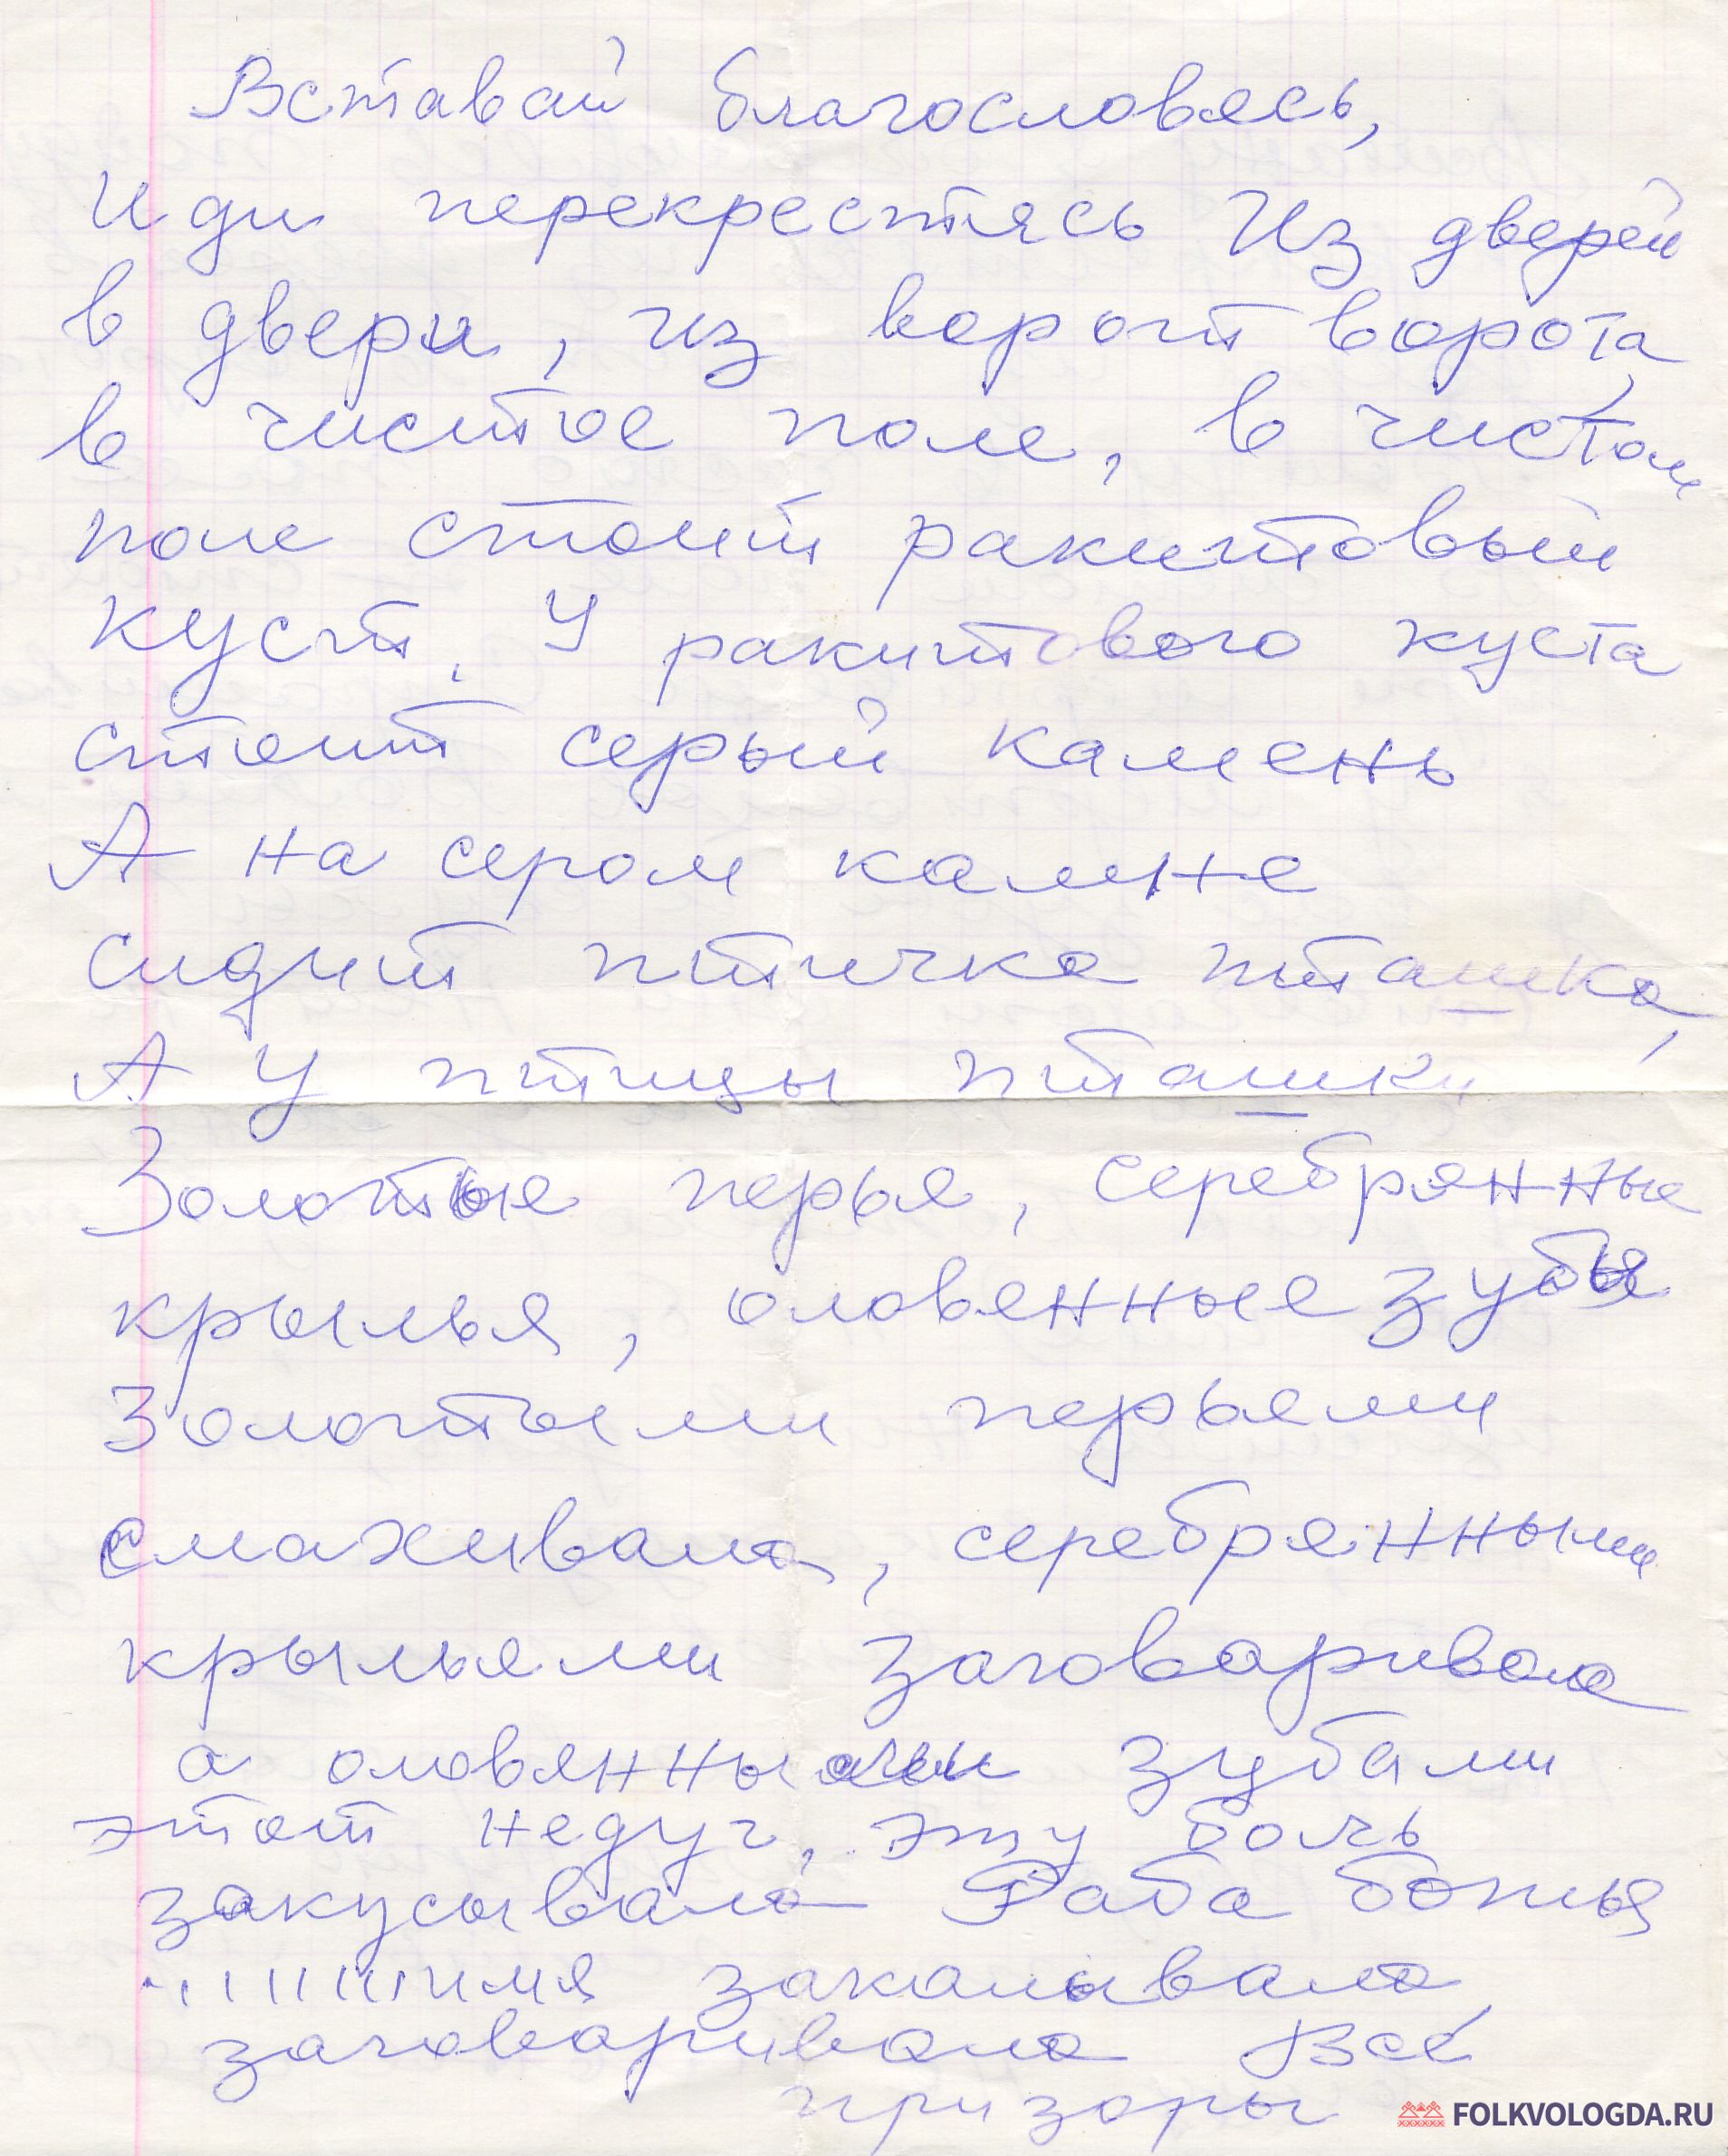 Вставай благословясь,
Иди перекрестясь Из дверей
в двери, из ворот ворота,
в чистое поле, в чистом
поле стоит ракитовый
куст, У ракитового куста
стоит серый камень
А на сером камне
сидит птичка пташка,
А У птицы пташки
Золотые перья, серебрянные
крылья, оловянные зубы
Золотыми перьями
смахивала, серебрянными
крыльями заговаривала
а оловянными зубами
этот недуг, эту боль
закусывала Раба божья
имя закалывала,
заговаривала Всё
призоры
FOLKVOLOGDA.RU